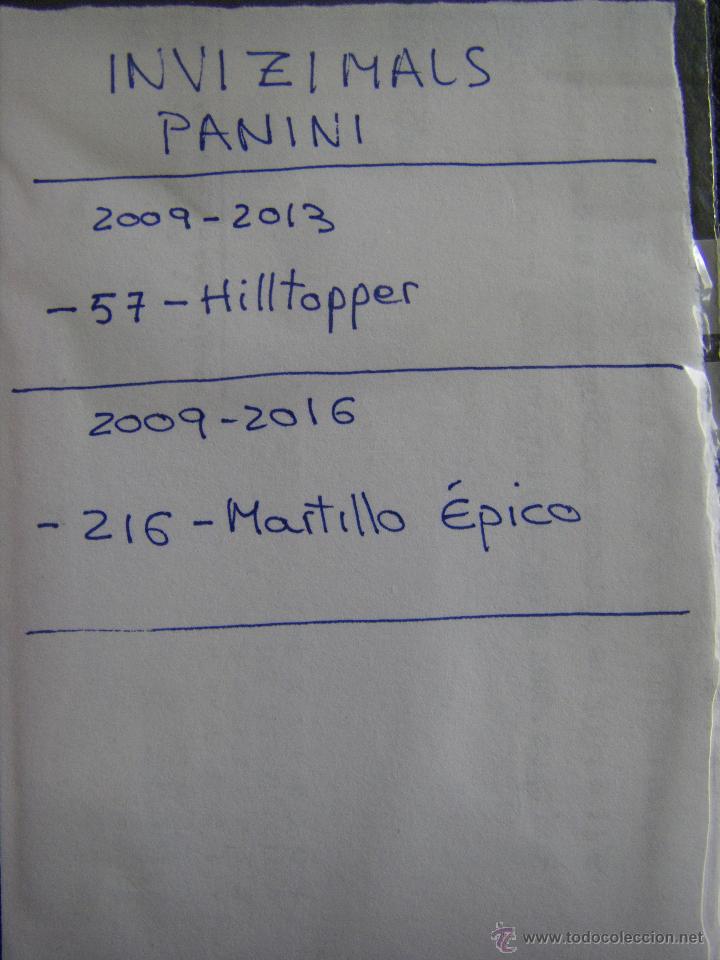 INVIZIMALS
PANINI
2009-2013
-57-Hilltopper
2009-2016
-216-Martillo Épico
www.todocoleccion.net